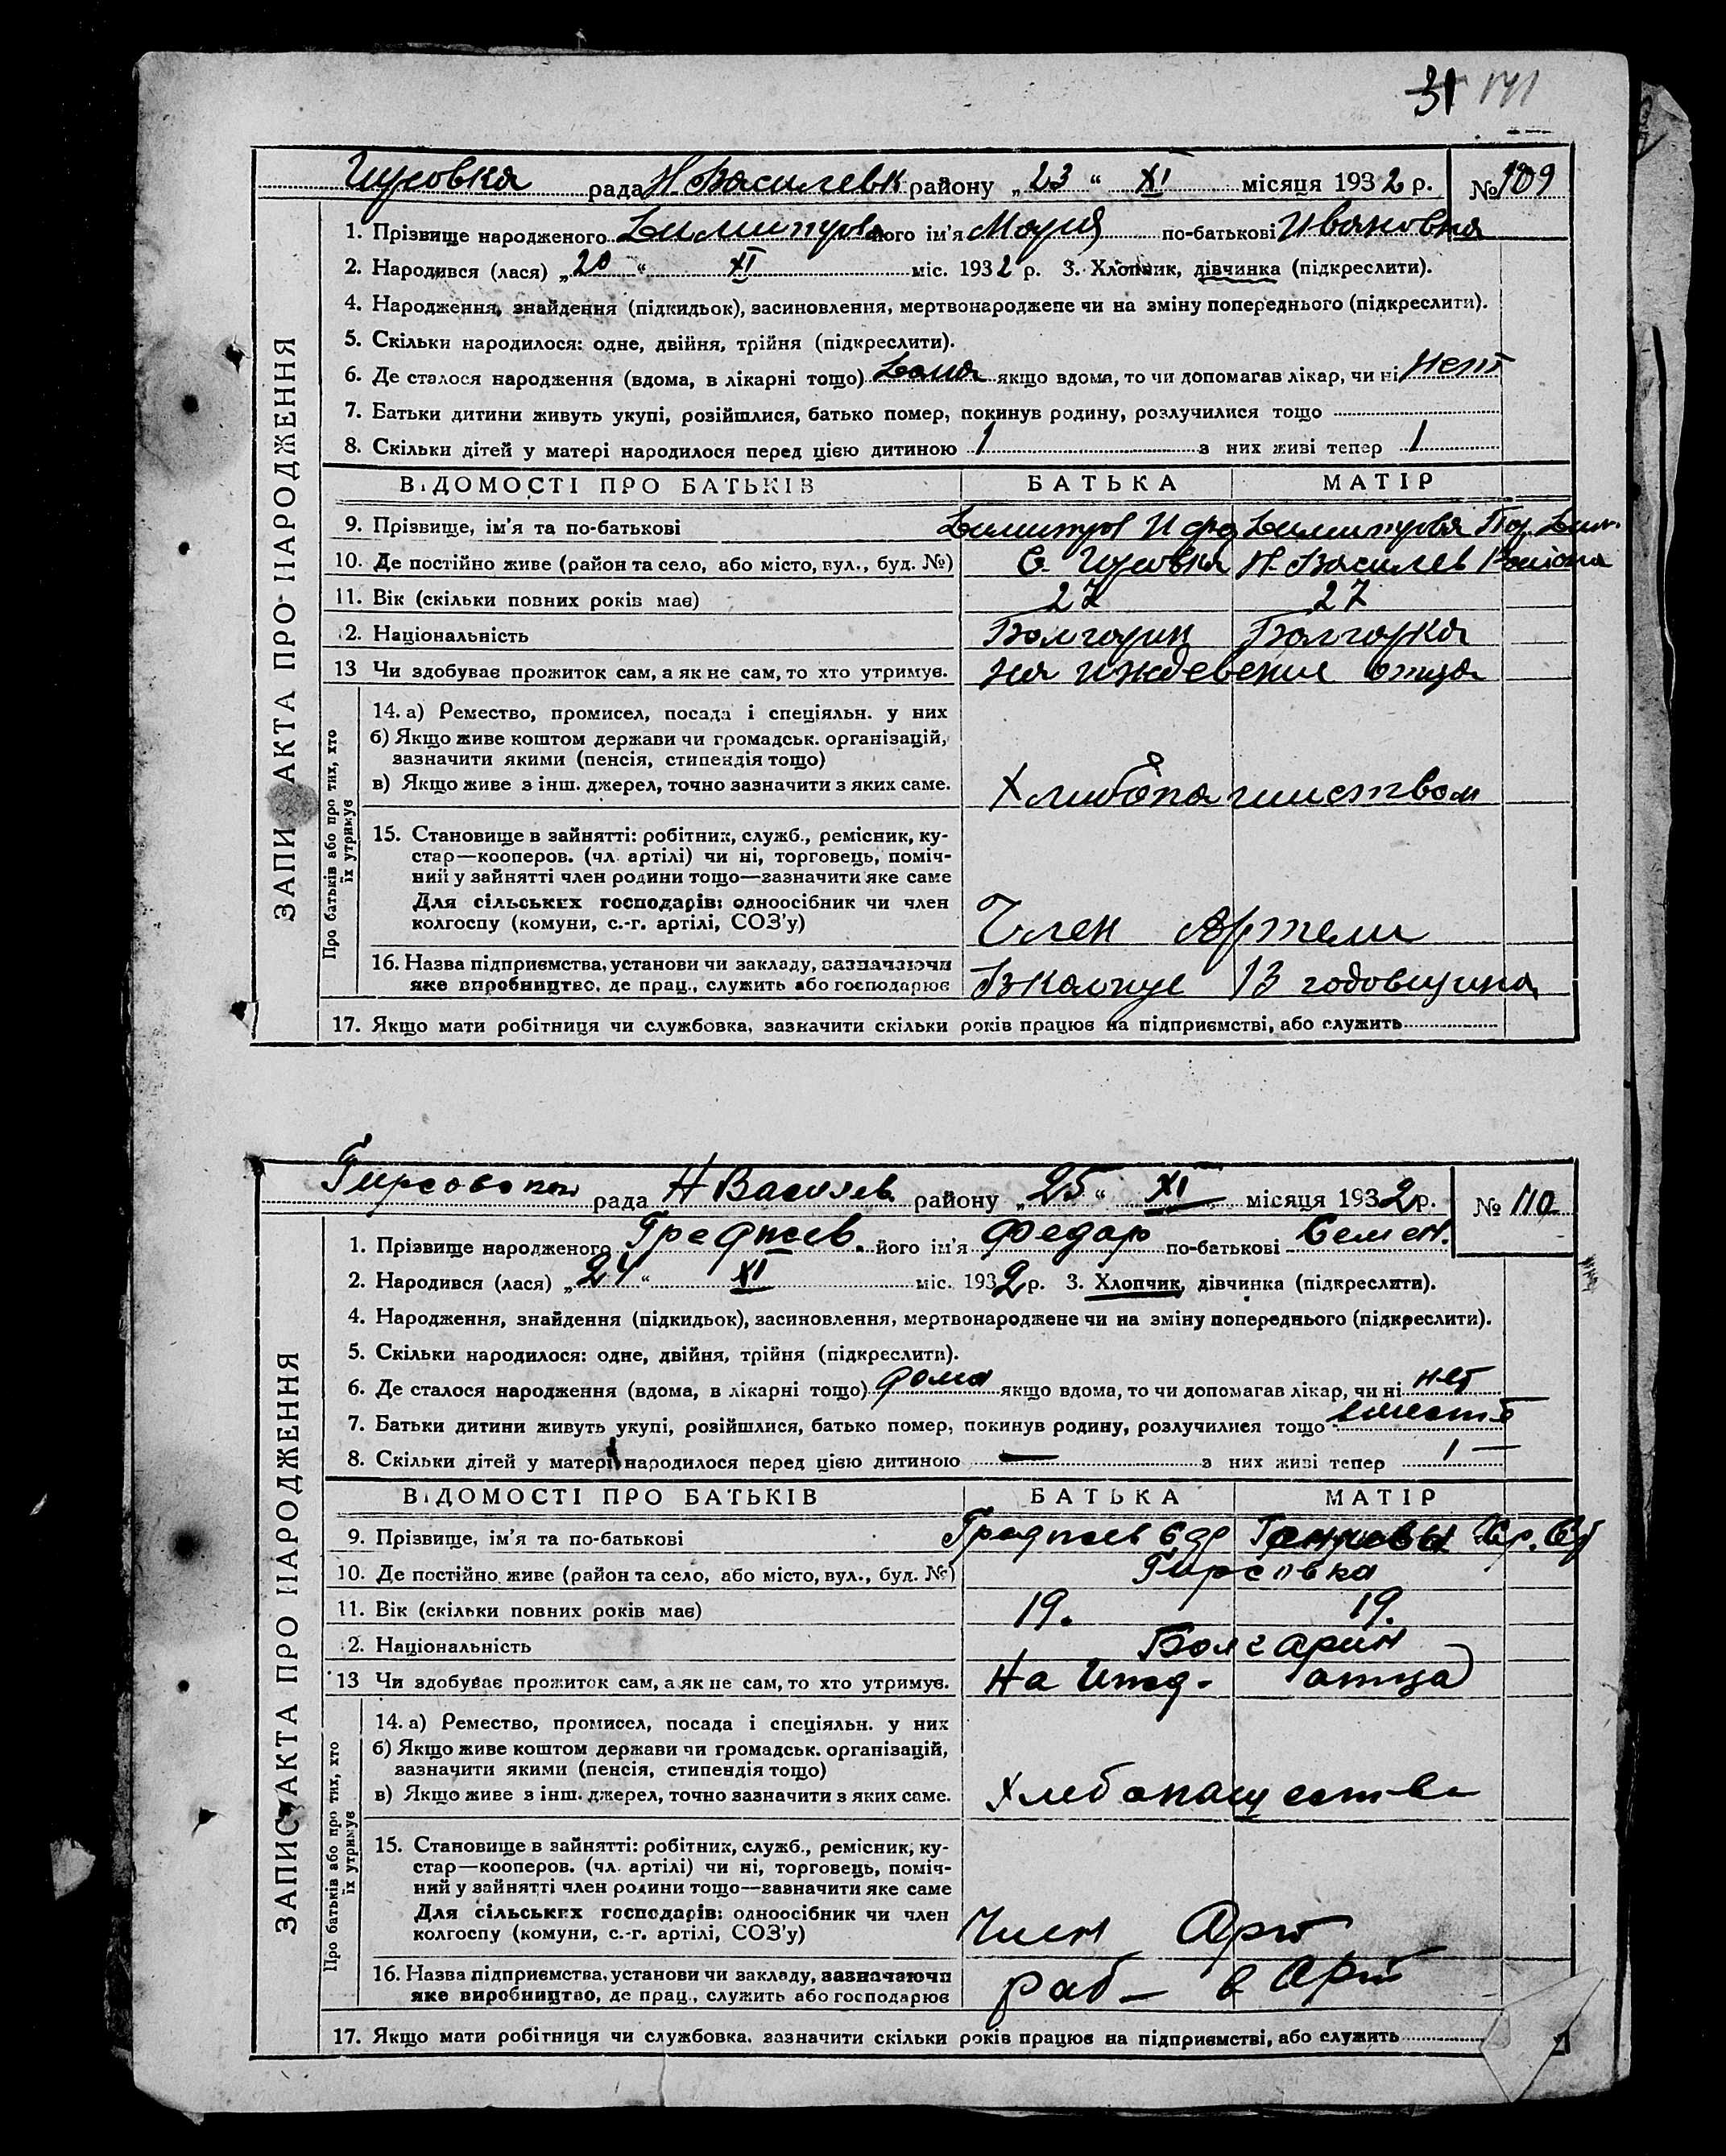 31 141
Гирсовка рада Н. Василевк району „23“ XI місяця 1932 р. № 109
ЗАПИС АКТА ПРО НАРОДЖЕННЯ
1. Прізвище народженого Димитрова його ім'я Мария по-батькові Ивановна
2. Народився (лася) „20“ XI міс. 1932 р. 3. Хлопчик, дівчинка (підкреслити).
4. Народження, знайдення (підкидьок), засиновлення, мертвонароджене чи на зміну попереднього (підкреслити).
5. Скільки народилося: одне, двійня, трійня (підкреслити).
6. Де сталося народження (вдома, в лікарні тощо) Дома якщо вдома, то чи допомагав лікар, чи ні Нет
7. Батьки дитини живуть укупі, розійшлися, батько помер, покинув родину, розлучилися тощо
8. Скільки дітей у матері народилося перед цією дитиною 1 з них живі тепер 1
ВІДОМОСТІ ПРО БАТЬКІВ БАТЬКА МАТІР
9. Прізвище, ім'я та по-батькові Димитров И Димитрова
10. Де постійно живе (район та село, або місто, вул., буд. №) С. Гирсовка Н. Василев Района
11. Вік (скільки повних років має) 27 27
12. Національність Болгарин Болгарка
13 Чи здобуває прожиток сам, а як не сам, то хто утримує. на иждевении отца
Про батьків або про тих, хто їх утримує
14. а) Ремество, промисел, посада і спеціяльн. у них
б) Якщо живе коштом держави чи громадськ. організацій,
зазначити якими (пенсія, стипендія тощо)
в) Якщо живе з інш. джерел, точно зазначити з яких саме. Хлибопашиством
15. Становище в зайнятті: робітник, служб., ремісник, ку-
стар—кооперов. (чл. артілі) чи ні, торговець, поміч-
ний у зайнятті член родини тощо—зазначити яке саме
Для сільських господарів: одноосібник чи член
колгоспу (комуни, с.-г. артілі, СОЗ'у) Член Артели
16. Назва підприємства, установи чи закладу, зазначаючи
яке виробництво, де прац., служить або господарює 13 годовщина
17. Якщо мати робітниця чи службовка, зазначити скільки років працює на підприємстві, або служить
рада Н Василев. району „25“ XI місяця 1932 р. № 110
ЗАПИС АКТА ПРО НАРОДЖЕННЯ
1. Прізвище народженого Граджев. його ім'я Федар по-батькові Семен.
2. Народився (лася) „24“ XI міс. 1932 р. 3. Хлопчик, дівчинка (підкреслити).
4. Народження, знайдення (підкидьок), засиновлення, мертвонароджене чи на зміну попереднього (підкреслити).
5. Скільки народилося: одне, двійня, трійня (підкреслити).
6. Де сталося народження (вдома, в лікарні тощо) дома якщо вдома, то чи допомагав лікар, чи ні нет
7. Батьки дитини живуть укупі, розійшлися, батько помер, покинув родину, розлучилися тощо вместе
8. Скільки дітей у матері народилося перед цією дитиною — з них живі тепер 1 —
ВІДОМОСТІ ПРО БАТЬКІВ БАТЬКА МАТІР
9. Прізвище, ім'я та по-батькові Граджев
10. Де постійно живе (район та село, або місто, вул., буд. №) Гирсовка
11. Вік (скільки повних років має) 19. 19.
12. Національність Болгарин
13 Чи здобуває прожиток сам, а як не сам, то хто утримує. На Ижд. отца
Про батьків або про тих, хто їх утримує
14. а) Ремество, промисел, посада і спеціяльн. у них
б) Якщо живе коштом держави чи громадськ. організацій,
зазначити якими (пенсія, стипендія тощо)
в) Якщо живе з інш. джерел, точно зазначити з яких саме. Хлебопащество
15. Становище в зайнятті: робітник, служб., ремісник, ку-
стар—кооперов. (чл. артілі) чи ні, торговець, поміч-
ний у зайнятті член родини тощо—зазначити яке саме
Для сільських господарів: одноосібник чи член
колгоспу (комуни, с.-г. артілі, СОЗ'у) Член Арт
16. Назва підприємства, установи чи закладу, зазначаючи
яке виробництво, де прац., служить або господарює раб— в Арт
17. Якщо мати робітниця чи службовка, зазначити скільки років працює на підприємстві, або служить